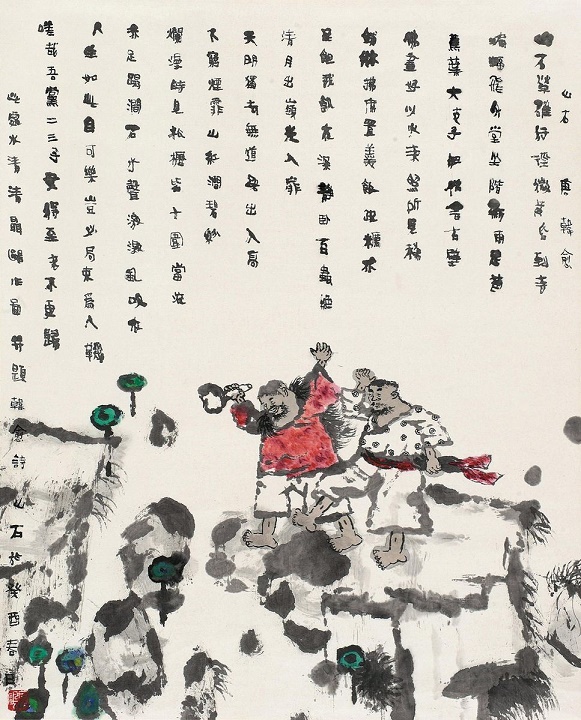 山石 唐 韓愈
山石犖确行徑微黃昏到寺
蝙蝠飛升堂坐階新雨足芭
蕉葉大支子肥僧言古壁
佛畫好以火來照所見稀
鋪牀拂席置羹飯疏糲亦
足飽我飢夜深靜卧百蟲絕
清月出嶺光入扉
天明獨去無道路出入高
下窮煙霏山紅澗碧紛
爛漫時見松櫪皆十圍當流
赤足蹋澗石水聲激激風吹衣
人生如此自可樂豈必局束爲人鞿
嗟哉吾黨二三子安得至老不更歸
水清清晶 作畫并題韓愈詩山石於癸酉春日